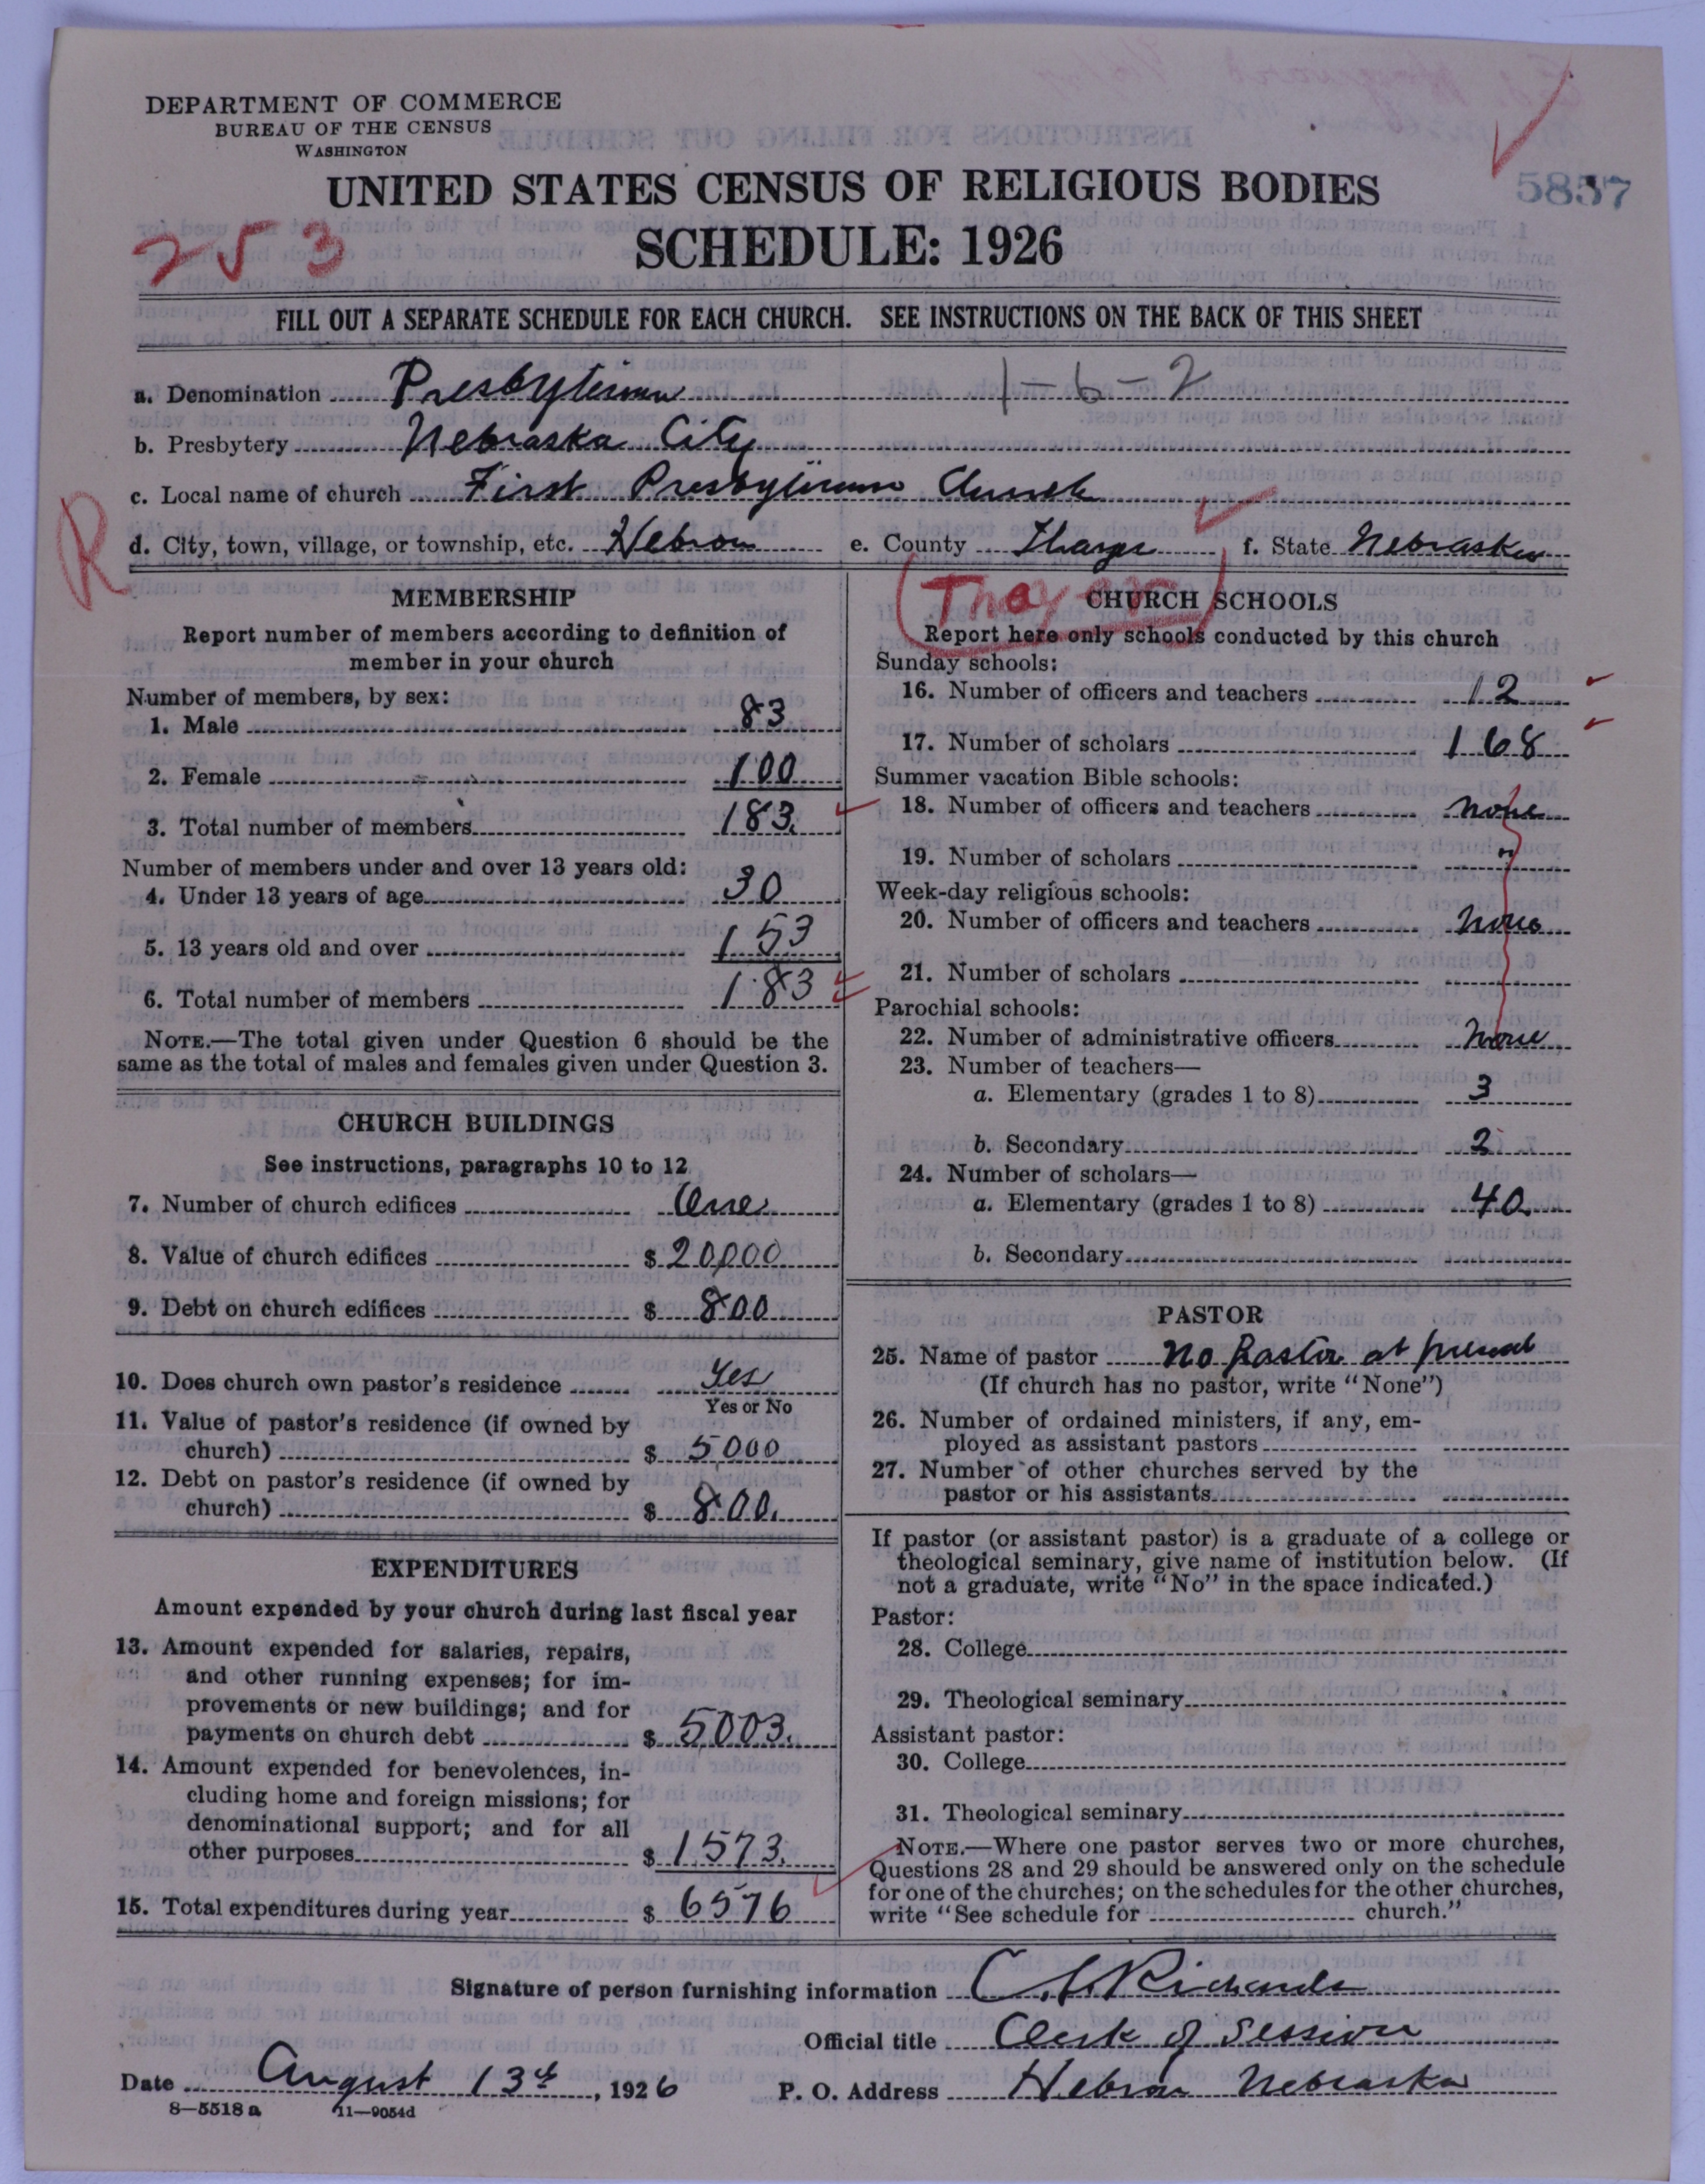 DEPARTMENT OF COMMERCE
BUREAU OF THE CENSUS
WASHINGTON
UNITED STATES CENSUS OF RELIGIOUS BODIES
5857
253
SCHEDULE: 1926
FILL OUT A SEPARATE SCHEDULE FOR EACH CHURCH. SEE INSTRUCTIONS ON THE BACK OF THIS SHEET
a. Denomination Presbyterian 1-6-2
b. Presbytery Nebraska City
c. Local name of church First Presbyterian Church
R
d. City, town, village, or township, etc. Hebron e. County f. State Nebraska
(Thayer)
MEMBERSHIP
Report number of members according to definition of
member in your church
Number of members, by sex:
1. Male 83
2. Female 100
3. Total number of members 183.
Number of members under and over 13 years old:
4. Under 13 years of age 30
5. 13 years old and over 153
6. Total number of members 183
NOTE.—The total given under Question 6 should be the
same as the total of males and females given under Question 3.
CHURCH BUILDINGS
See instructions, paragraphs 10 to 12
7. Number of church edifices One
8. Value of church edifices $ 20,000
9. Debt on church edifices $ 800
10. Does church own pastor's residence Yes
Yes or No
11. Value of pastor's residence (if owned by
church) $ 5000
12. Debt on pastor's residence (if owned by
church) $ 800.
EXPENDITURES
Amount expended by your church during last fiscal year
13. Amount expended for salaries, repairs,
and other running expenses; for im-
provements or new buildings; and for
payments on church debt $ 5003.
14. Amount expended for benevolences, in-
cluding home and foreign missions; for
denominational support; and for all
other purposes $ 1573.
15. Total expenditures during year $ 6576
CHURCH SCHOOLS
Report here only schools conducted by this church
Sunday schools:
16. Number of officers and teachers 12
17. Number of scholars 168
Summer vacation Bible schools:
18. Number of officers and teachers none
19. Number of scholars "
Week-day religious schools:
20. Number of officers and teachers None
21. Number of scholars
Parochial schools:
22. Number of administrative officers None
23. Number of teachers—
a. Elementary (grades 1 to 8) 3
b. Secondary 2
24. Number of scholars—
a. Elementary (grades 1 to 8) 40.
b. Secondary
PASTOR
25. Name of pastor No Pastor at present
(If church has no pastor, write "None")
26. Number of ordained ministers, if any, em-
ployed as assistant pastors
27. Number of other churches served by the
pastor or his assistants
If pastor (or assistant pastor) is a graduate of a college or
theological seminary, give name of institution below. (If
not a graduate, write "No" in the space indicated.)
Pastor:
28. College
29. Theological seminary
Assistant pastor:
30. College
31. Theological seminary
NOTE.—Where one pastor serves two or more churches,
Questions 28 and 29 should be answered only on the schedule
for one of the churches; on the schedules for the other churches,
write "See schedule for church."
Signature of person furnishing information Richards
Official title Clerk of Session
Date August 13th, 1926 P. O. Address Hebron Nebraska
8—5518 a 11—9054d